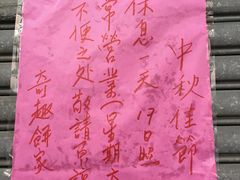 中秋佳節
休息一天 19日照
常營業(星期六
不便之處敬請原諒
奇趣餅家